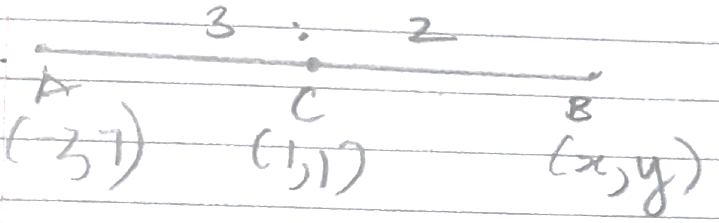 3 : 2
A C B
(-3,7) (1,1) (x,y)